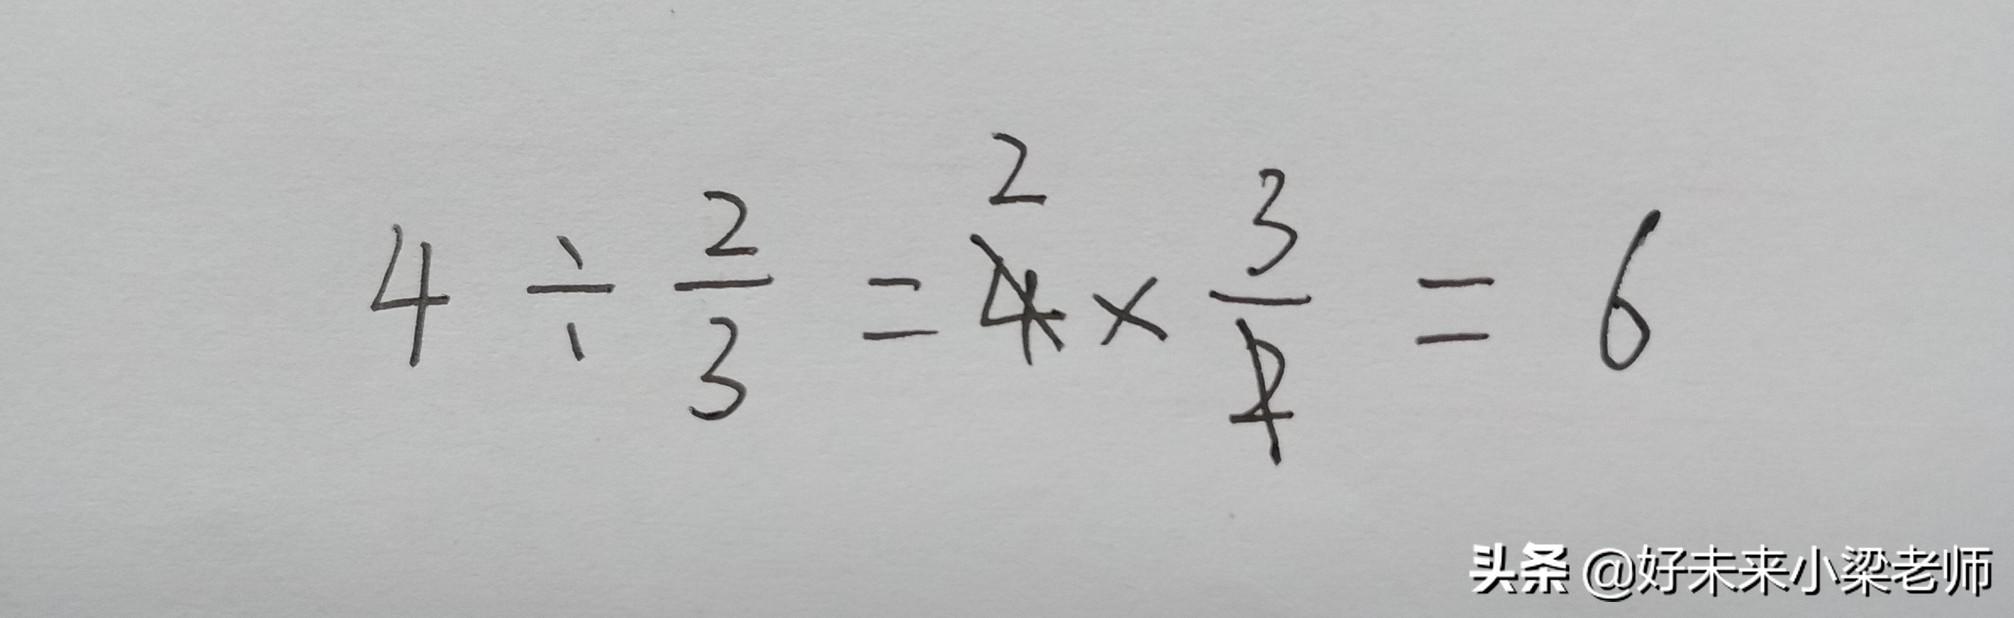 4 ÷ 2/3 = 4 × 3/2 = 6
2
头条 @好未来小梁老师